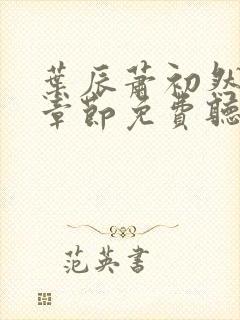 葉辰蕭初然
章節免費聽
范英書